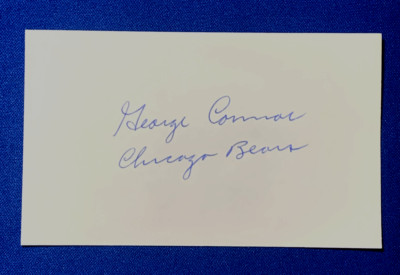 George Connor
Chicago Bears